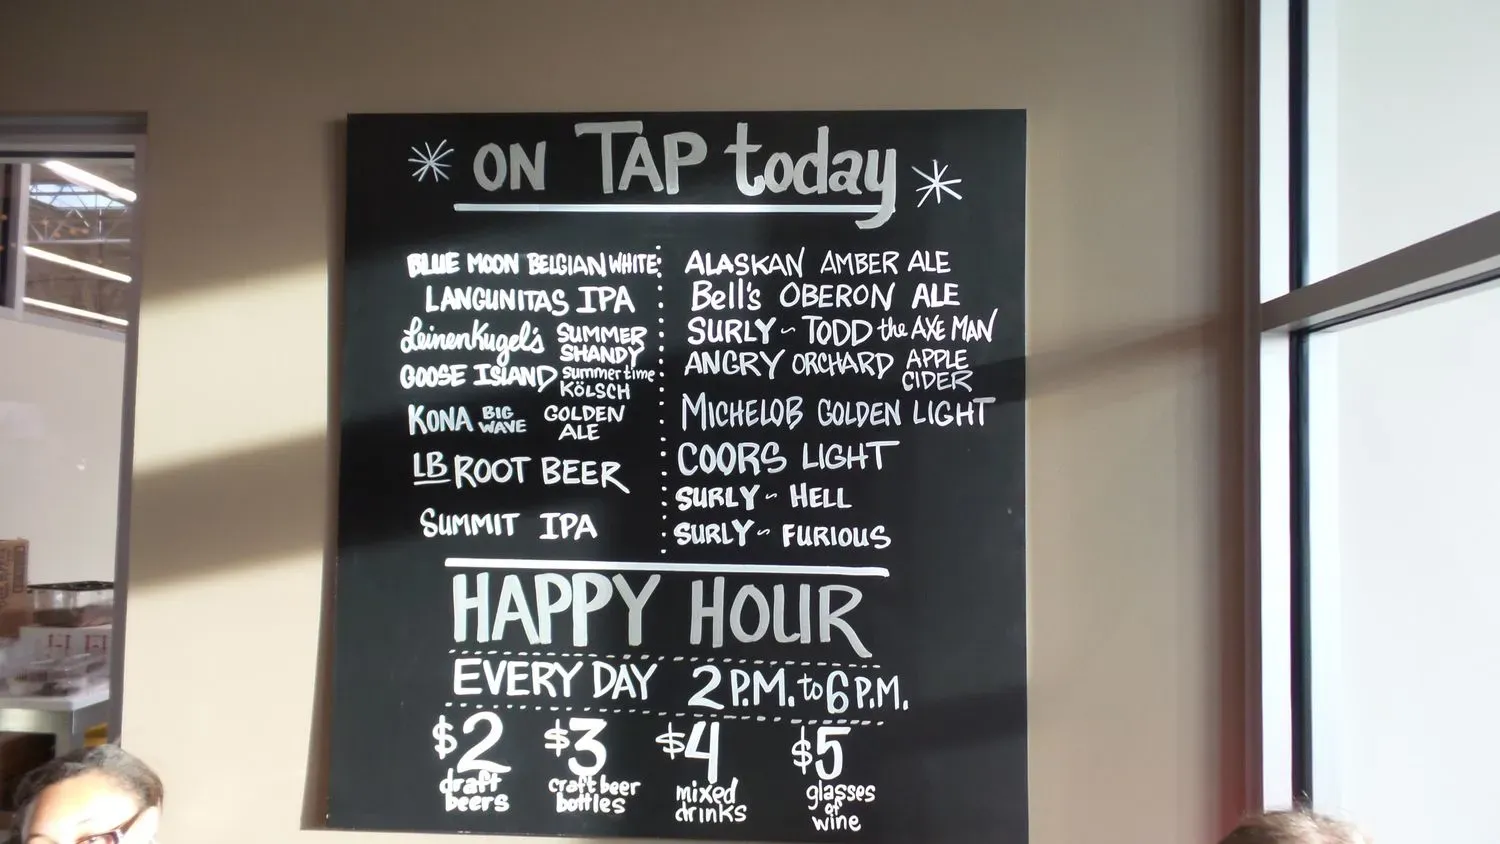 ON TAP today
BLUE MOON BELGIAN WHITE
LANGUNITAS IPA
Leinenkugel's SUMMER
SHANDY
GOOSE ISLAND summertime
KÖLSCH
KONA BIG WAVE GOLDEN
ALE
LB ROOT BEER
SUMMIT IPA
ALASKAN AMBER ALE
Bell's OBERON ALE
SURLY ~ TODD the AXE MAN
ANGRY ORCHARD APPLE
CIDER
MICHELOB GOLDEN LIGHT
COORS LIGHT
SURLY ~ HELL
SURLY ~ FURIOUS
HAPPY HOUR
EVERY DAY 2 P.M. to 6 P.M.
$2 draft
beers
$3 craft beer
bottles
$4 mixed
drinks
$5 glasses
of
wine